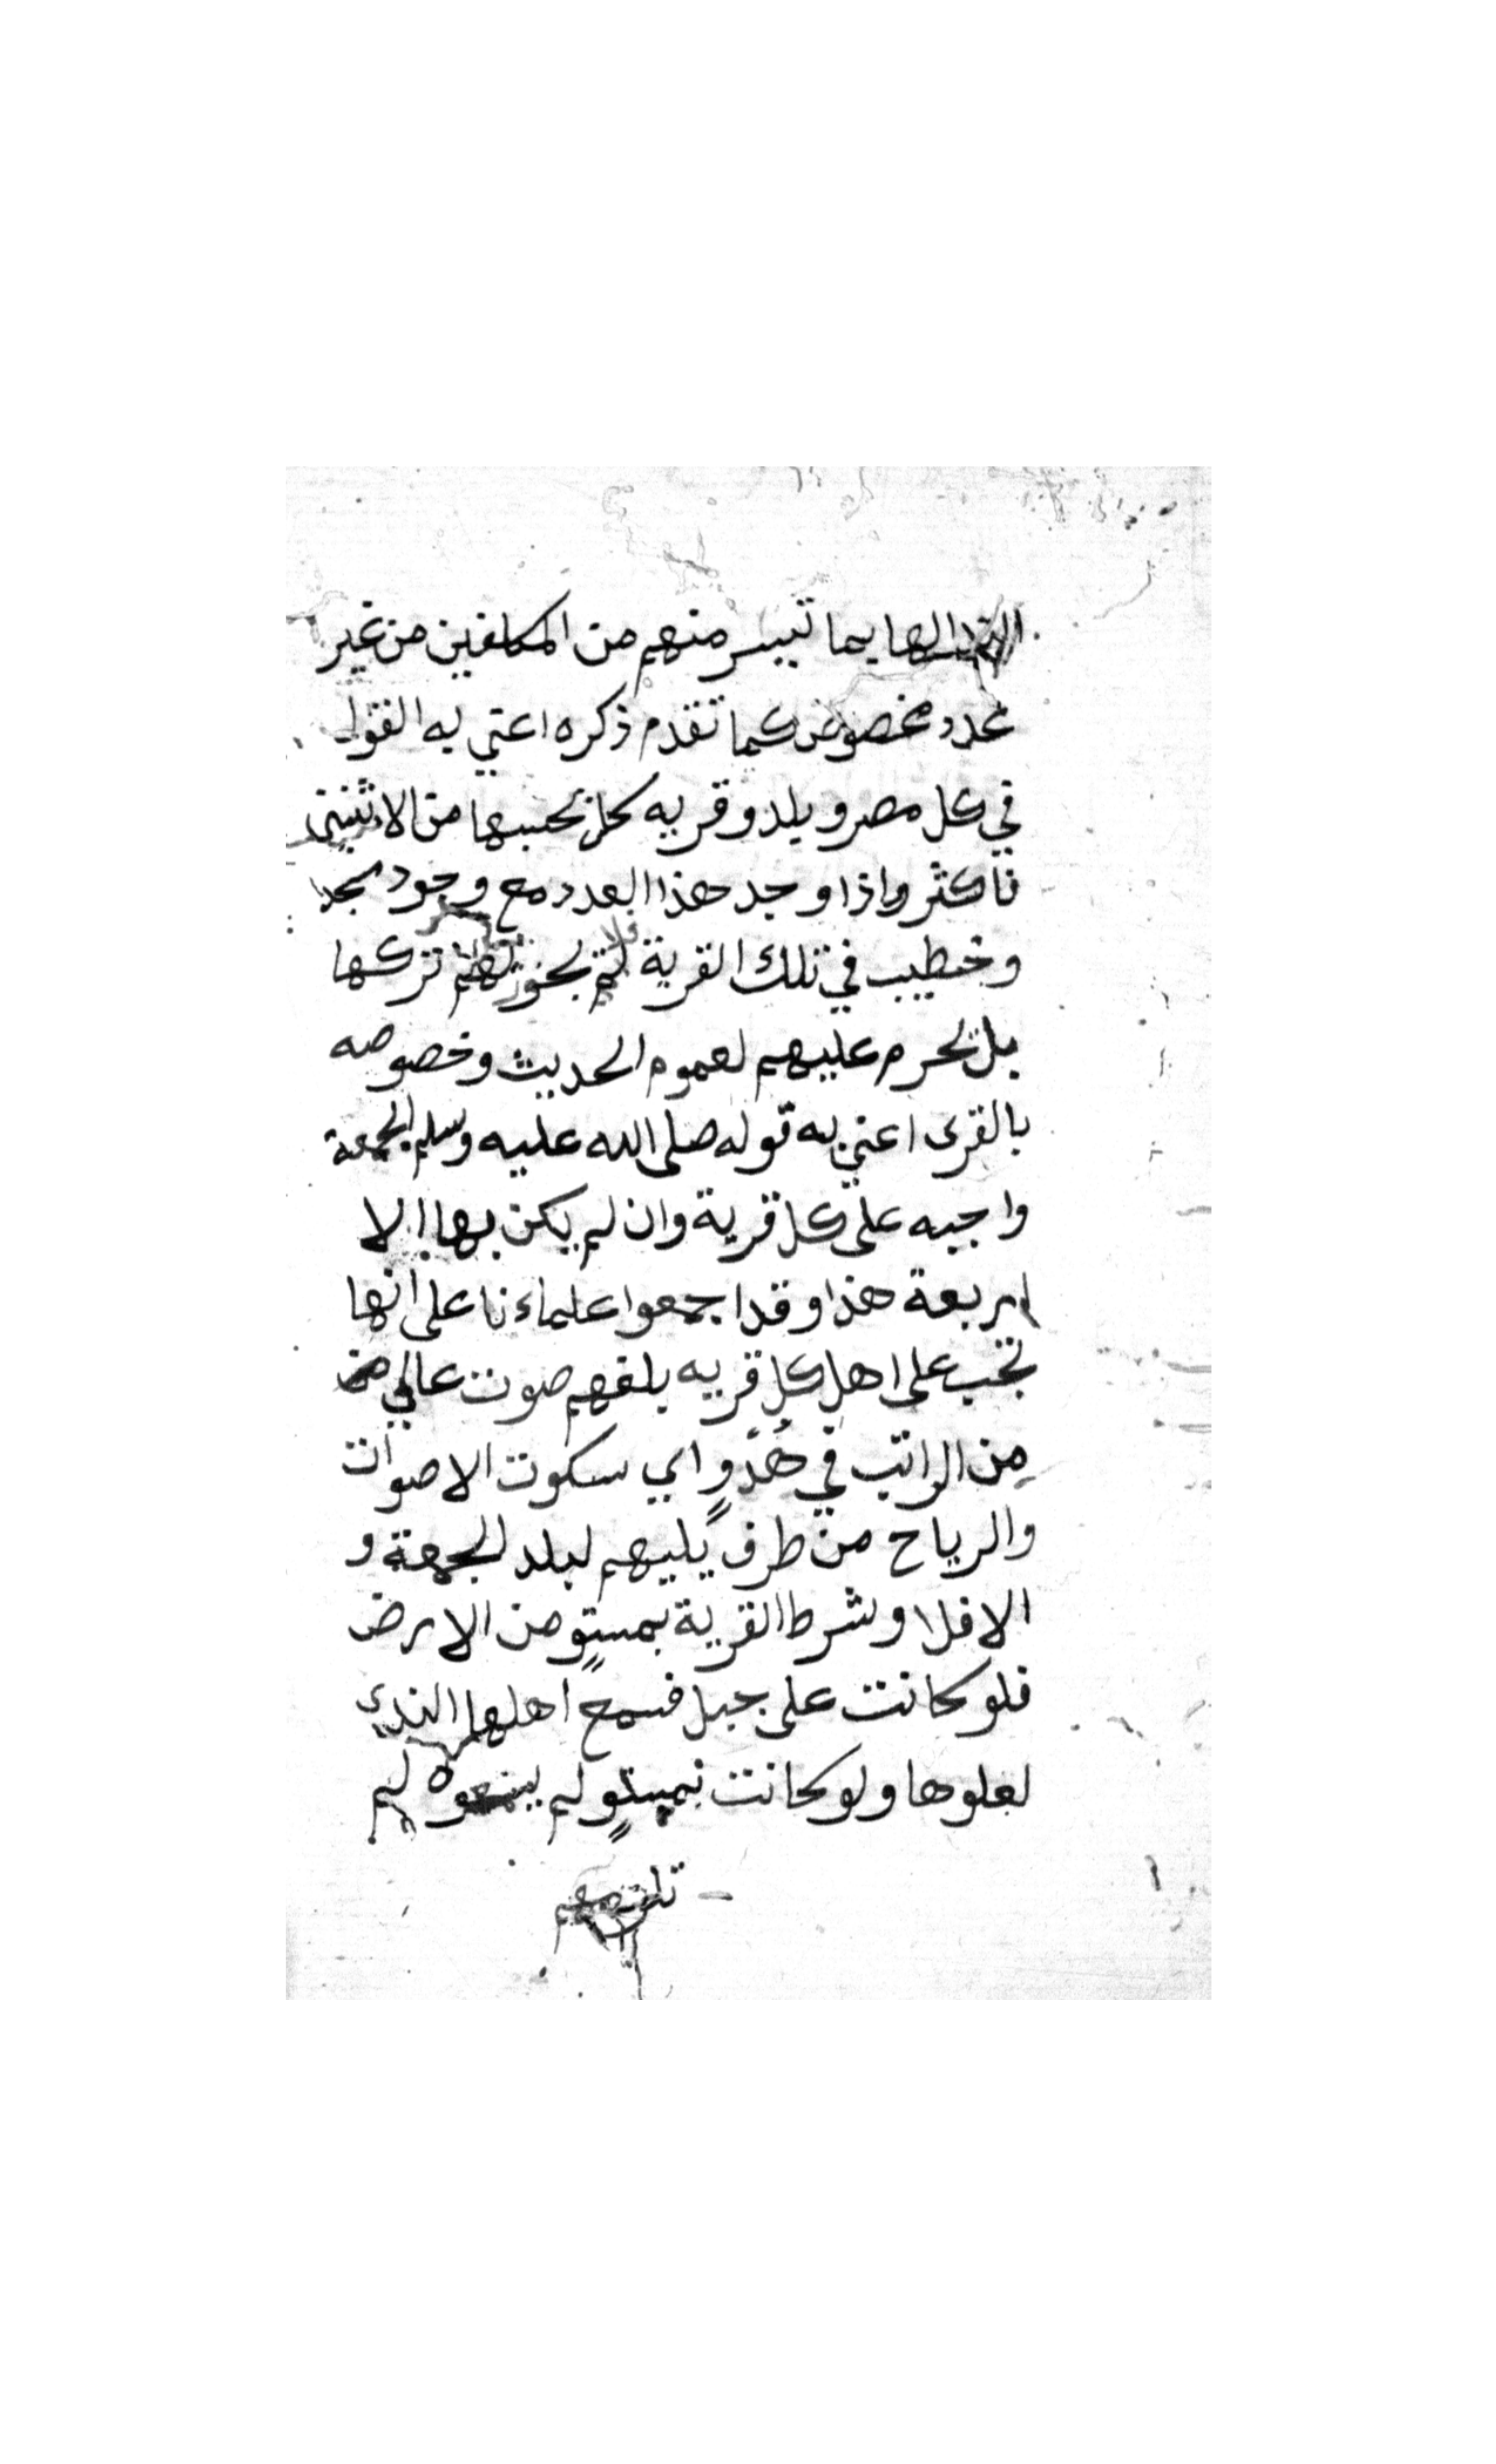 بما تيسر منهم من المكلفين من غير
عدد مخصوص كما تقدم ذكره اعني به القول
في كل مصر وبلد وقريه كل بحسبها من الاثنين
فاكثر واذا وجد هذا العدد مع وجود مسجد
وخطيب في تلك القرية لم يجوز لهم تركها
بل تحرم عليهم لعموم الحديث وخصوصه
بالقرى اعني به قوله صلى الله عليه وسلم الجمعة
واجبه على كل قرية وان لم يكن بها الا
اربعة هذا وقد اجمعوا علماءنا على انها
تجب على اهل كل قريه بلغهم صوت عالي
من الراتب في هدوٍ اي سكوت الاصوات
والرياح من طرف يليهم لبلد الجمعة و
الا فلا وشرط القرية بمستوٍ من الارض
فلو كانت على جبل فسمع اهلها الندي
لعلوها ولو كانت بمستوٍ لم يسمعوه لم
تلزمهم